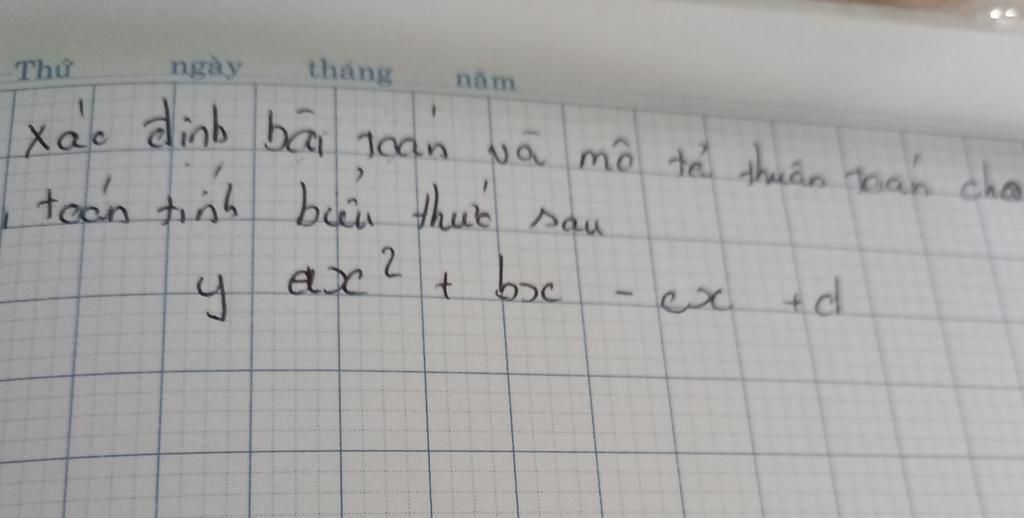 Thứ ngày tháng năm
Xác định bài toán và mô tả thuân toán cho
toán tính biểu thức sau
y ax² + bx - cx + d